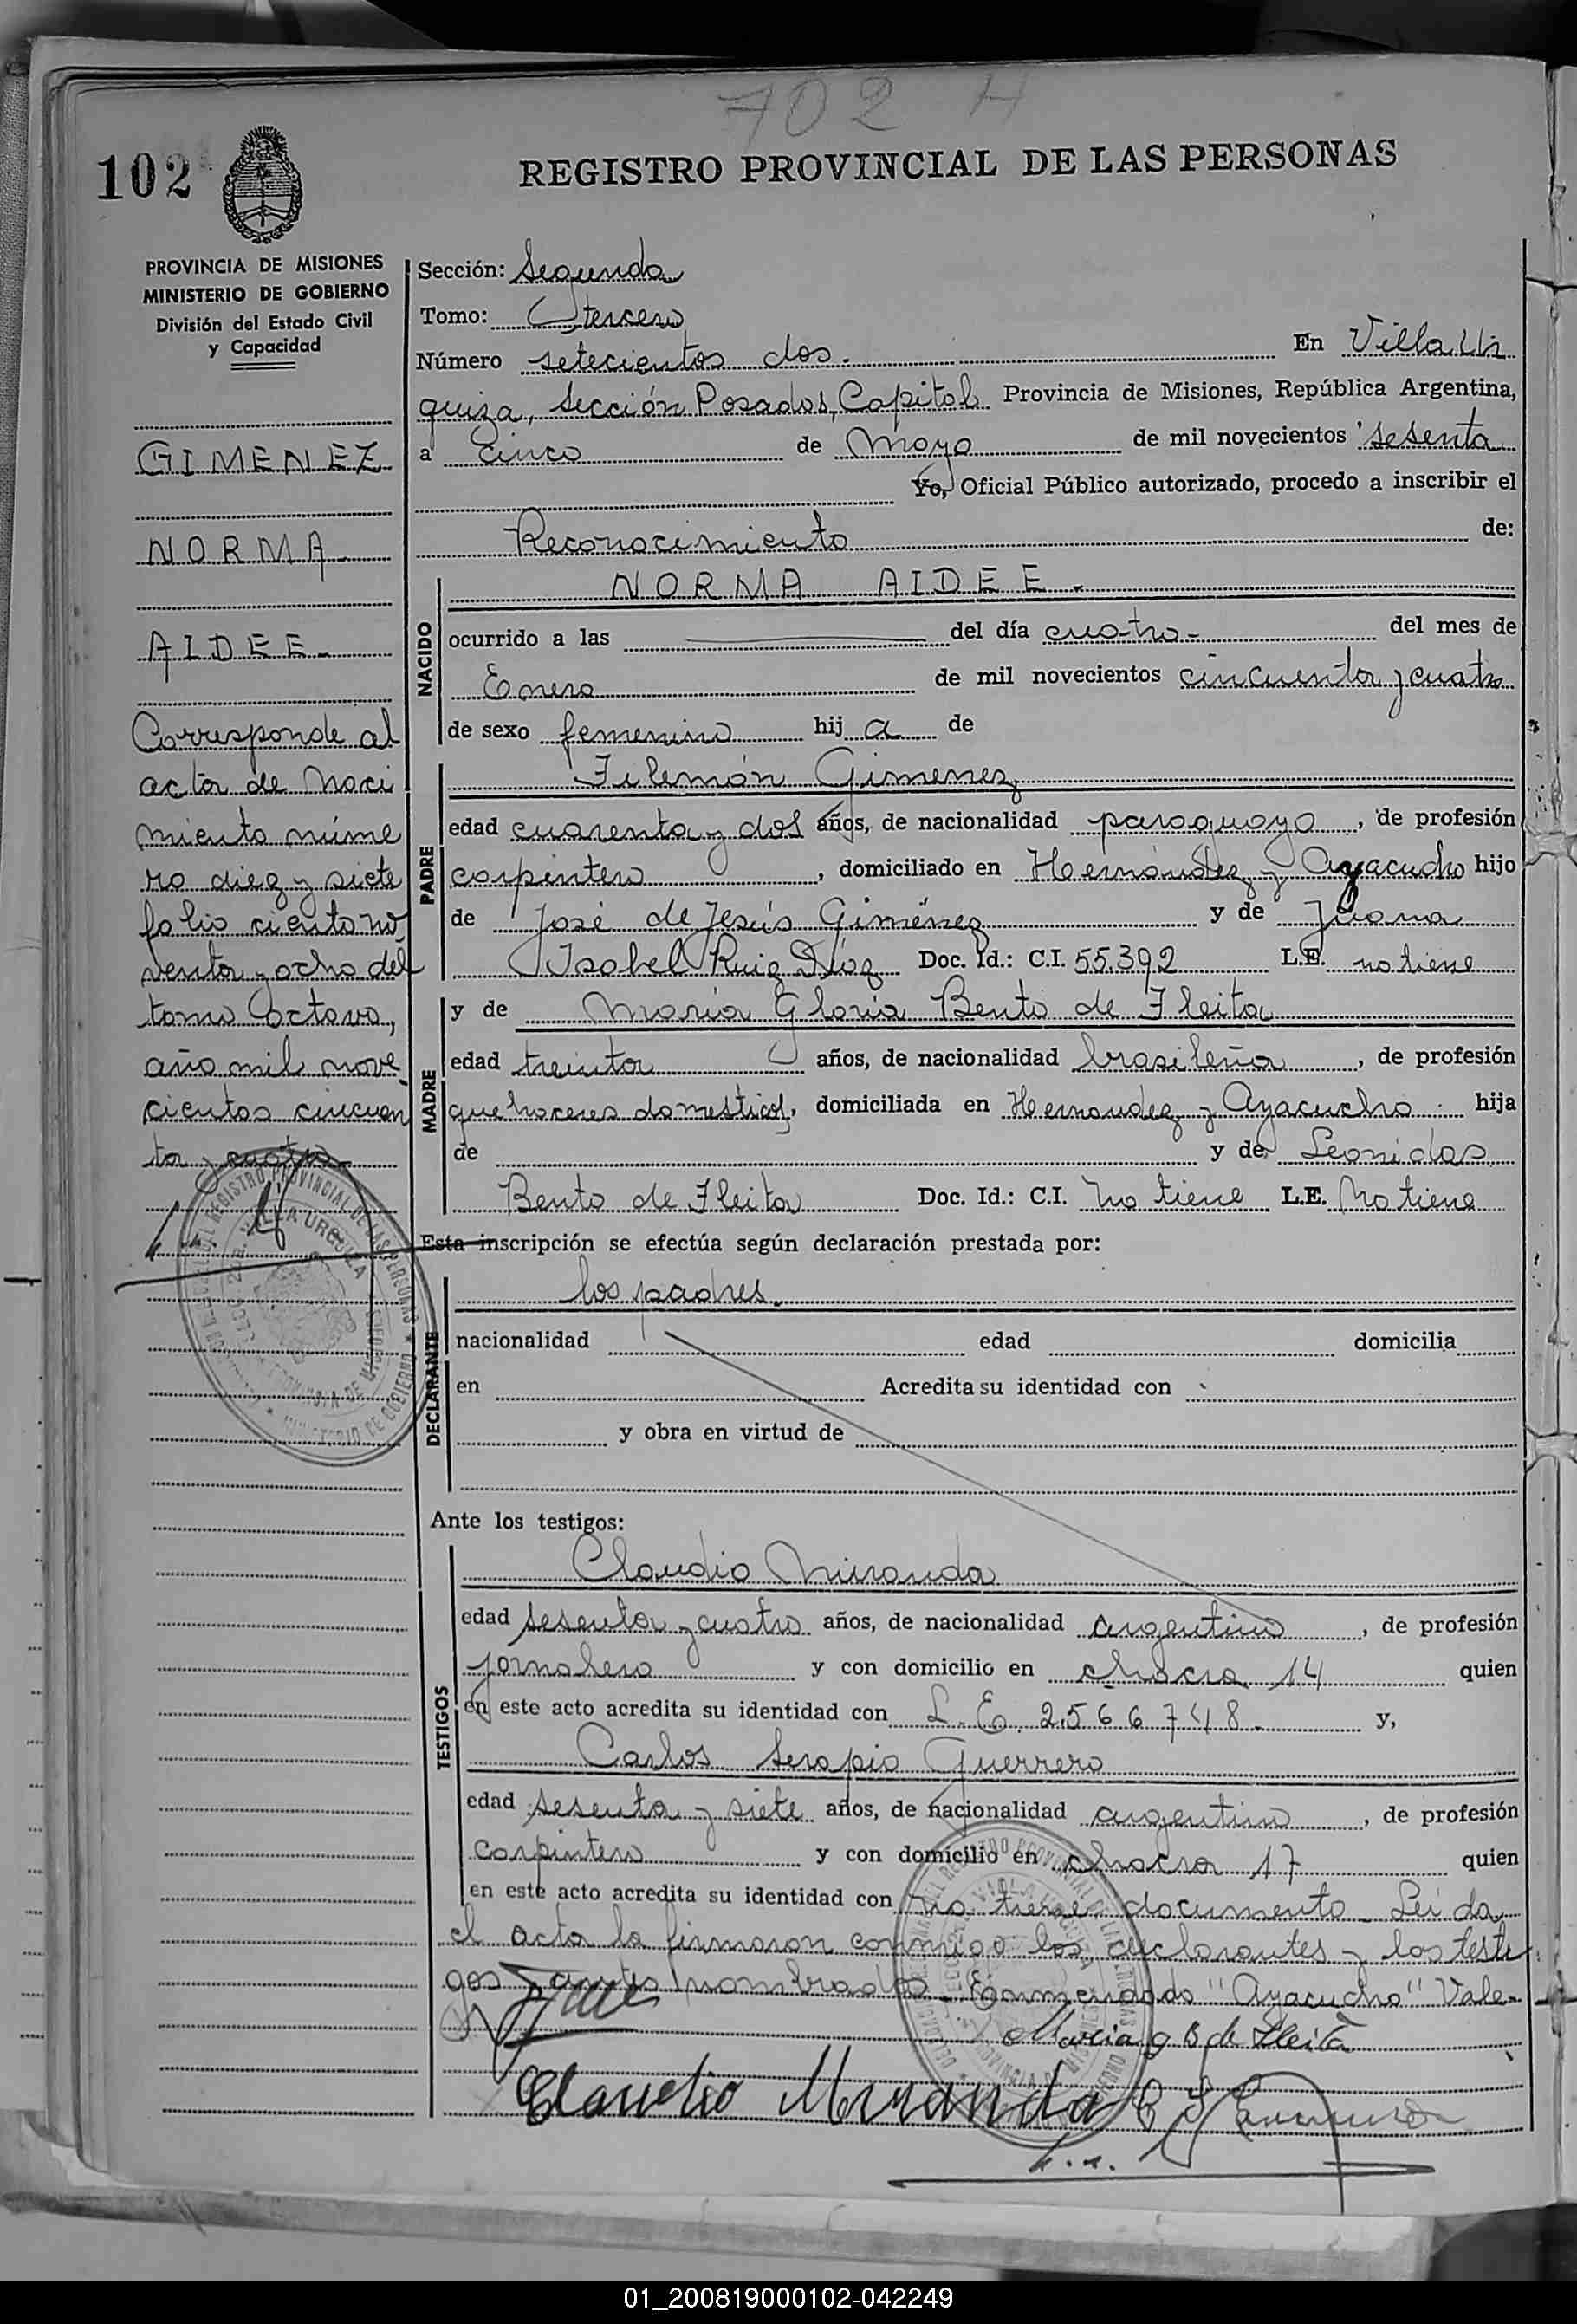 702 H
102
REGISTRO PROVINCIAL DE LAS PERSONAS
PROVINCIA DE MISIONES
MINISTERIO DE GOBIERNO
División del Estado Civil
y Capacidad
GIMENEZ
NORMA
AIDEE.-
Corresponde al
acta de Naci
miento núme
ro diez y siete
folio ciento no
venta y ocho del
tomo Octavo,
año mil nove
cientos cincuen
ta y cuatro
Sección: Segunda
Tomo: tercero
Número setecientos dos.- En Villa Ur
quiza, Sección Posadas, Capital Provincia de Misiones, República Argentina,
a cinco de Mayo de mil novecientos sesenta
Yo, Oficial Público autorizado, procedo a inscribir el
Reconocimiento de:
NACIDO
NORMA AIDEE.-
ocurrido a las del día cuatro- del mes de
Enero de mil novecientos cincuenta y cuatro
de sexo femenino hij a de
PADRE
Filemón Gimenez
edad cuarenta y dos años, de nacionalidad paraguaya, de profesión
carpintero, domiciliado en Hernández y Ayacucho hijo
de José de Jesús Giménez y de Juana
Isabel Ruiz Díaz Doc. Id.: C.I. 55.392 L.E. no tiene
MADRE
y de María Gloria Bento de Fleita
edad treinta años, de nacionalidad brasileña, de profesión
quehaceres domesticos, domiciliada en Hernandez y Ayacucho hija
de y de Leonidas
Bento de Fleita Doc. Id.: C.I. No tiene L.E. No tiene
Esta inscripción se efectúa según declaración prestada por:
DECLARANTE
los padres.
nacionalidad edad domicilia
en Acredita su identidad con
y obra en virtud de
Ante los testigos:
TESTIGOS
Claudio Miranda
edad sesenta y cuatro años, de nacionalidad argentino, de profesión
jornalero y con domicilio en chacra 14 quien
en este acto acredita su identidad con L.E. 2566748.- y,
Carlos Serapio Guerrero
edad sesenta y siete años, de nacionalidad argentino, de profesión
carpintero y con domicilio en chacra 17 quien
en este acto acredita su identidad con no tiene documento. Leida
el acta la firmaron conmigo los declarantes y los testi
gos antes nombrados. Enmendado "Ayacucho" Vale.-
Maria g B de Fleita
Claudio Miranda
01_200819000102-042249